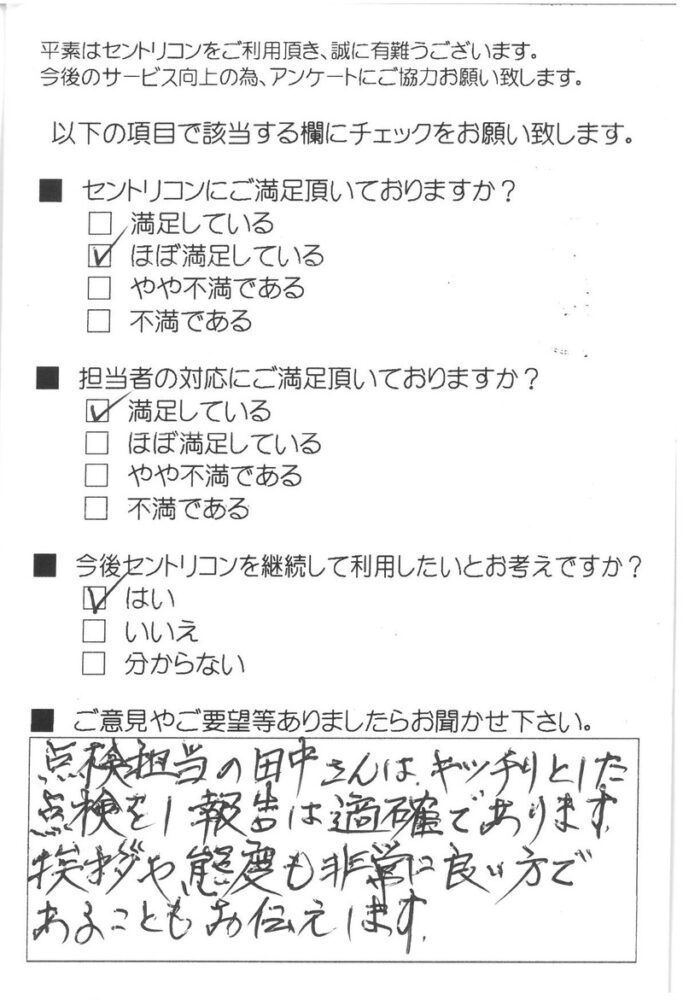 平素はセントリコンをご利用頂き、誠に有難うございます。
今後のサービス向上の為、アンケートにご協力お願い致します。
以下の項目で該当する欄にチェックをお願い致します。
■ セントリコンにご満足頂いておりますか？
□ 満足している
☑ ほぼ満足している
□ やや不満である
□ 不満である
■ 担当者の対応にご満足頂いておりますか？
☑ 満足している
□ ほぼ満足している
□ やや不満である
□ 不満である
■ 今後セントリコンを継続して利用したいとお考えですか？
☑ はい
□ いいえ
□ 分からない
■ ご意見やご要望等ありましたらお聞かせ下さい。
点検担当の田中さんは、キッチリとした
点検をし報告は適確であります。
挨拶や態度も非常に良い方で
あることもお伝えします。